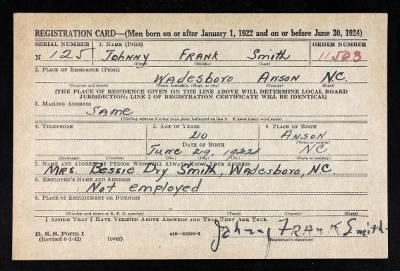 REGISTRATION CARD—(Men born on or after January 1, 1922 and on or before June 30, 1924)
SERIAL NUMBER 1. NAME (Print) ORDER NUMBER
N 125 Johnny Frank Smith 11503
(First) (Middle) (Last)
2. PLACE OF RESIDENCE (Print)
Wadesboro Anson NC.
(Number and street) (Town, township, village, or city) (County) (State)
[THE PLACE OF RESIDENCE GIVEN ON THE LINE ABOVE WILL DETERMINE LOCAL BOARD
JURISDICTION; LINE 2 OF REGISTRATION CERTIFICATE WILL BE IDENTICAL]
3. MAILING ADDRESS
Same
4. TELEPHONE 5. AGE IN YEARS 6. PLACE OF BIRTH
20 Anson
DATE OF BIRTH
June 29, 1922 NC
(Exchange) (Number) (Mo.) (Day) (Yr.)
7. NAME AND ADDRESS OF PERSON WHO WILL ALWAYS KNOW YOUR ADDRESS
Mrs. Bessie Dry Smith, Wadesboro, NC.
8. EMPLOYER'S NAME AND ADDRESS
Not employed
9. PLACE OF EMPLOYMENT OR BUSINESS
(Number and street or R. F. D. number) (Town) (County) (State)
I AFFIRM THAT I HAVE VERIFIED ABOVE ANSWERS AND THAT THEY ARE TRUE.
D. S. S. Form 1
(Revised 6-1-42) (over)
Johnny Frank Smith
(Registrant's signature)